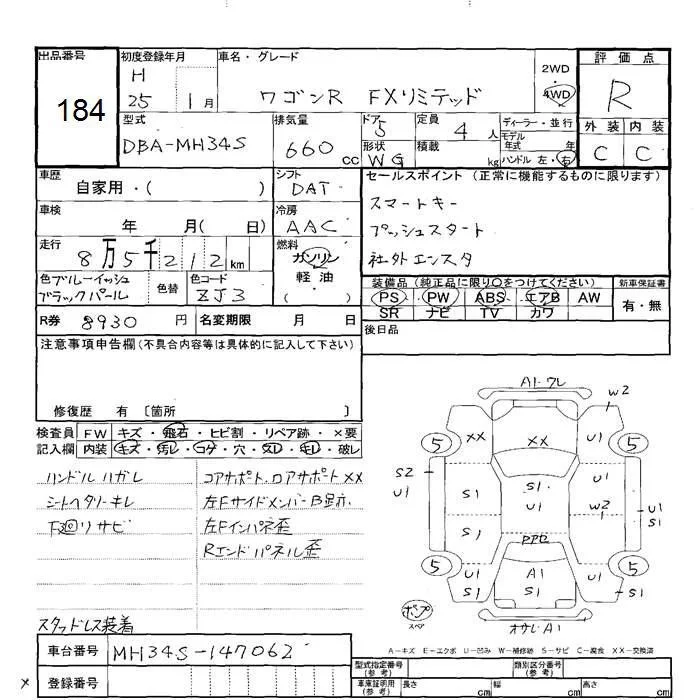 出品番号 初度登録年月 車名・グレード 評価点
184
H 25 1月 ワゴンR FXリミテッド 2WD 4WD R
型式 DBA-MH34S 排気量 660cc ドア 5 定員 4人 ディーラー・並行 外装 内装
形状 WG 積載 kg モデル年式 年 ハンドル 左・右 C C
車歴 自家用・( ) シフト DAT セールスポイント(正常に機能するものに限ります)
車検 年 月( 日) 冷房 AAC
スマートキー
プッシュスタート
社外エンスタ
走行 8万5千212km 燃料 ガソリン 軽油 ( )
色 ブルーイッシュブラックパール 色替 色コード ZJ3
装備品(純正品に限り○をつけてください) 新車保証書
PS PW ABS エアB AW 有・無
SR ナビ TV カワ
R券 8930円 名変期限 月 日 後日品
注意事項申告欄(不具合内容等は具体的に記入して下さい)
修復歴 有 〔箇所 〕
検査員 FW キズ・飛石・ヒビ割・リペア跡・×要
記入欄 内装 キズ・汚レ・コゲ・穴・スレ・キレ・破レ
ハンドル ハガレ コアサポート、ロアサポート XX
シートヘタリ・キレ 左Fサイドメンバー B跡
下廻リ サビ 左Fインパネ歪
Rエンドパネル歪
スタッドレス装着
A1・ワレ
W2
XX XX U1
5 5
S2 U1 S1 S1 U1 S1 W2 U1 S1
S1 S1
5 5
U1 S1 A1 U1 S1
ポンプ スペア
A1
A-キズ E-エクボ U-凹み W-補修跡 S-サビ C-腐食 XX-交換済
車台番号 MH34S-147062
型式指定番号(参考) 類別区分番号(参考)
× 登録番号
車庫証明用(参考) 長さ cm 幅 cm 高さ cm